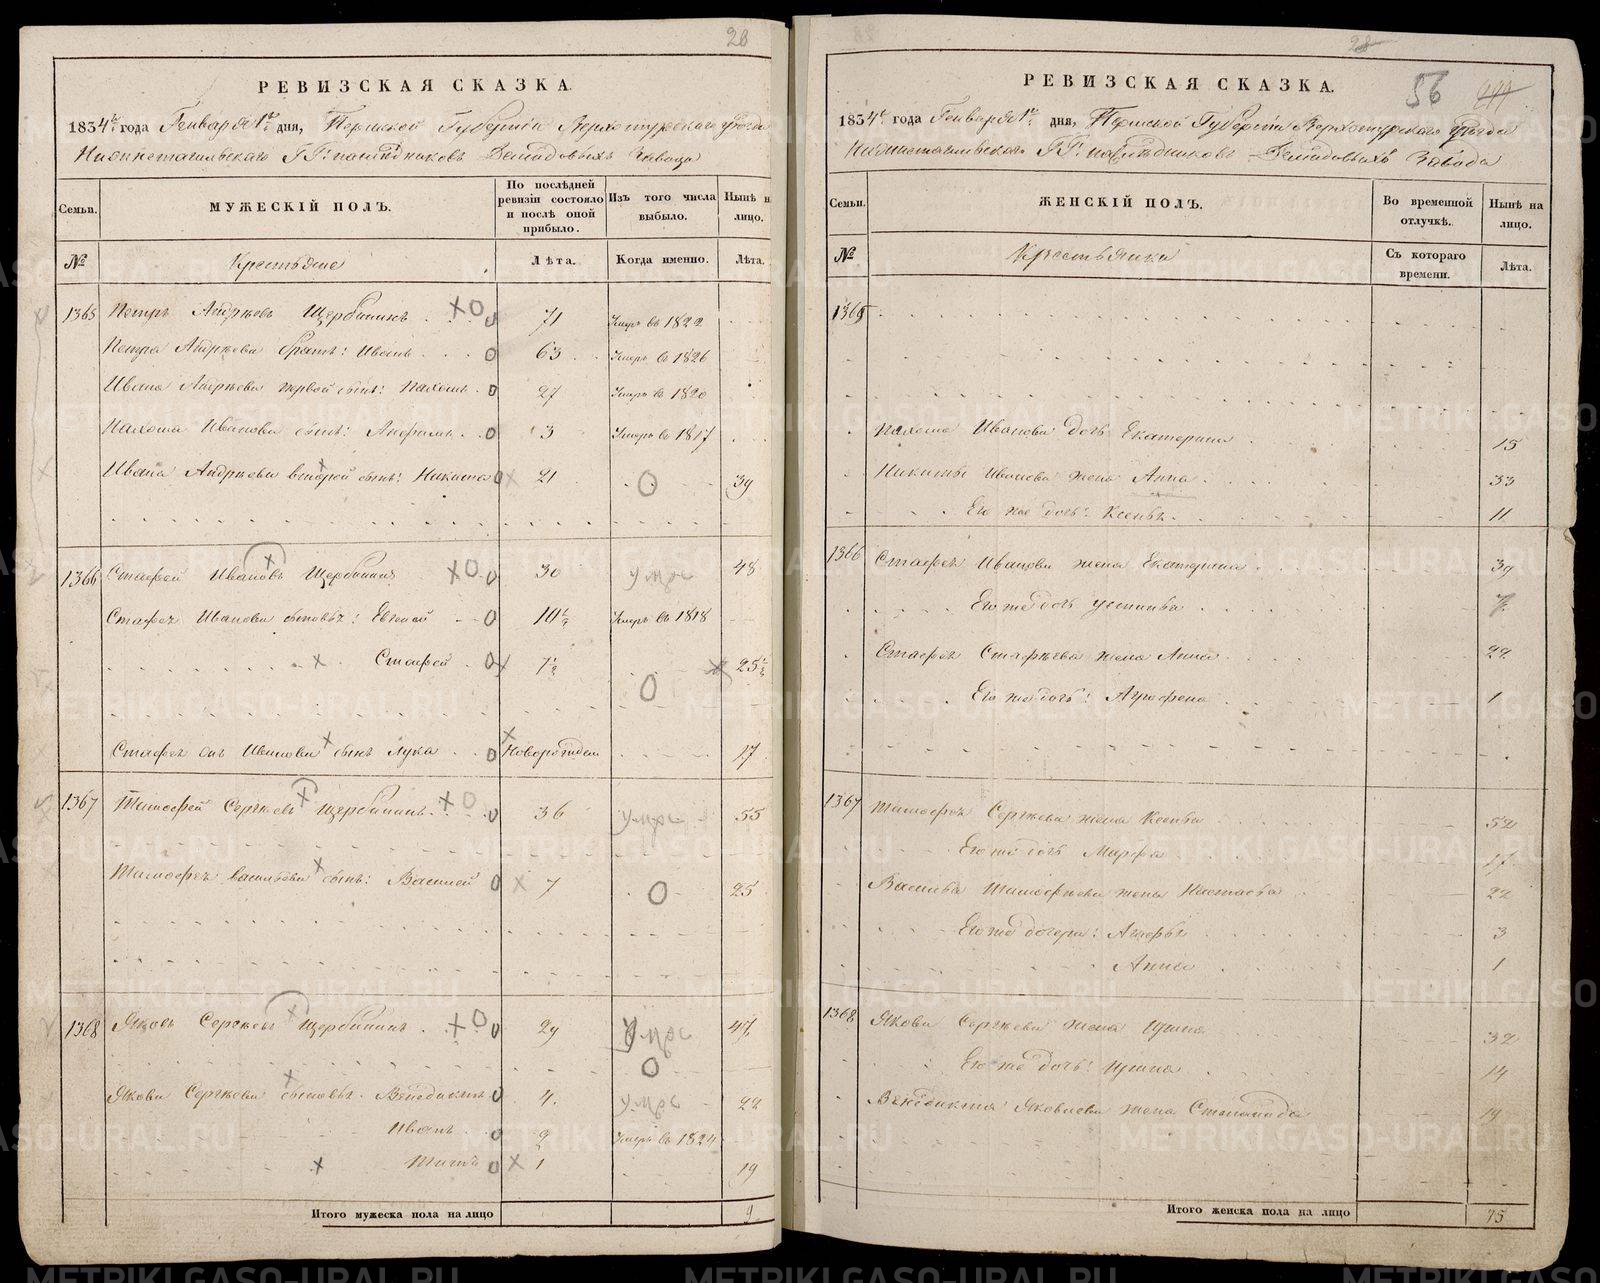 28
РЕВИЗСКАЯ СКАЗКА.
1834 года Генваря 1 дня, Пермской Губернiи Верхотурскаго уѣзда
Нижнетагильскаго ГГ. наслѣдниковъ Демидовыхъ Завода
Семьи.
МУЖЕСКIЙ ПОЛЪ.
По послѣдней ревизiи состояло и послѣ оной прибыло.
Изъ того числа выбыло.
Нынѣ на лицо.
№
Крестьяне
Лѣта.
Когда именно.
Лѣта.
1365 Петръ Андрѣевъ Щербининъ 71 Умеръ въ 1822
Петра Андрѣева братъ: Иванъ 63 Умеръ въ 1826
Ивана Андрѣева первой сынъ: Пахомъ 27 Умеръ въ 1820
Пахома Иванова сынъ: 3 Умеръ въ 1817
Ивана Андрѣева второй сынъ: Никита 21 39
1366 Стафей Ивановъ Щербининъ 30 умре 48
Стафея Иванова сыновья: Евгений 10½ Умеръ въ 1818
Стафей 7½ 25½
Стафея Иванова сынъ Лука Новорожден 17
1367 Тимофей Сергѣевъ Щербининъ 36 умре 55
Тимофея Васильева сынъ: Василей 7 25
1368 Яковъ Сергѣевъ Щербининъ 29 умре 47
Якова Сергѣева сыновья: Венедиктъ 4 умре 22
Иванъ 2 Умеръ въ 1824
Титъ 1 19
Итого мужеска пола на лицо 9
28
56
РЕВИЗСКАЯ СКАЗКА.
1834 года Генваря 1 дня, Пермской Губернiи Верхотурскаго уѣзда
Нижнетагильскаго ГГ. наслѣдниковъ Демидовыхъ Завода
Семьи.
ЖЕНСКIЙ ПОЛЪ.
Во временной отлучкѣ.
Нынѣ на лицо.
№
Крестьянки
Съ котораго времени.
Лѣта.
1365
Пахома Иванова дочь Екатерина 15
Никиты Иванова жена Анна 33
Его же дочь: Ксенья 11
1366 Стафея Иванова жена Екатерина 39
Его же дочь Устинья 7
Стафея Стафѣева жена Анна 22
Его же дочь: Агрофена 1
1367 Тимофея Сергѣева жена Ксенья 52
Его же дочь Марфа 17
Василья Тимофѣева жена Настасья 22
Его же дочери: 3
Анна 1
1368 Якова Сергѣева жена Ирина 32
Его же дочь: Ирина 14
Венедикта Яковлева жена Степанида 19
Итого женска пола на лицо 15
METRIKI.GASO-URAL.RU